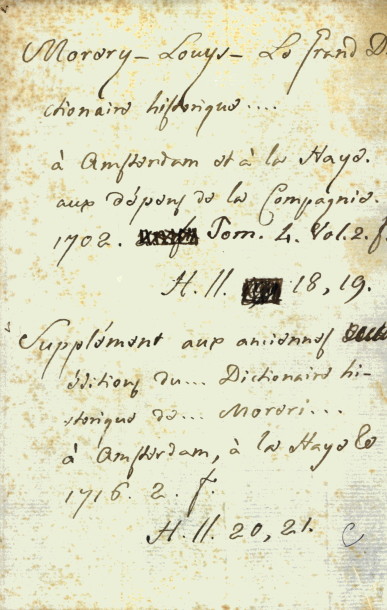 Morery - Louys - Le Grand Di
ctionaire historique....
à Amsterdam et à la Haye.
aux dépens de la Compagnie.
1702. Tom. 4. Vol. 2. f.
H. II. 18, 19.
Supplément aux anciennes
éditions du... Dictionaire hi-
storique de... Moreri...
à Amsterdam, à la Haye &c
1716. 2. f.
H. II. 20, 21.